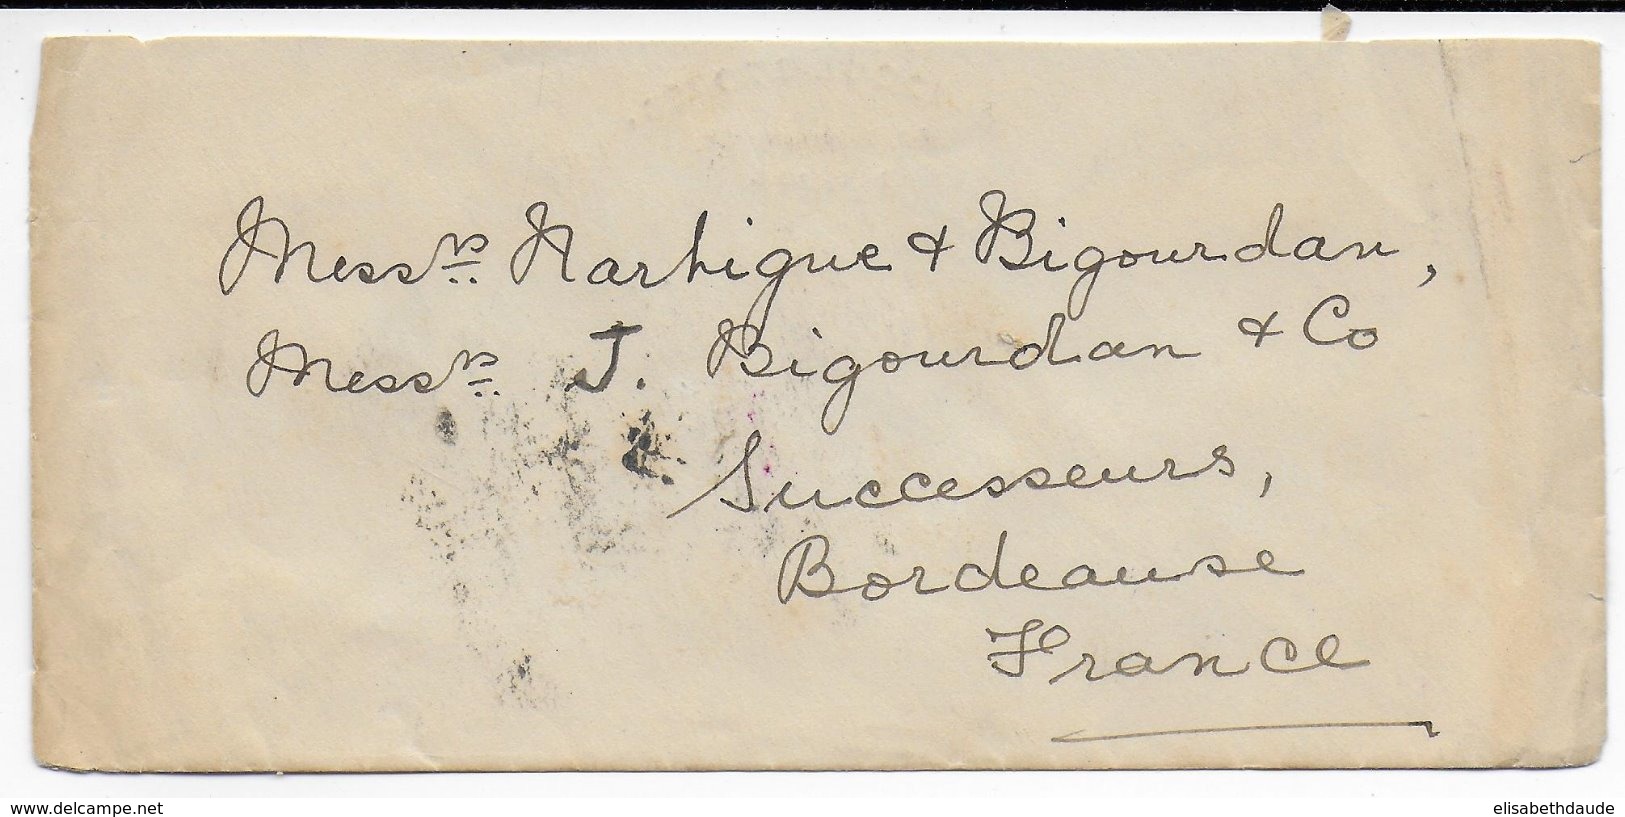 Messrs Hartigue & Bigourdan,
Messrs J. Bigourdan & Co
Successeurs,
Bordeause
France
www.delcampe.net
elisabethdaude